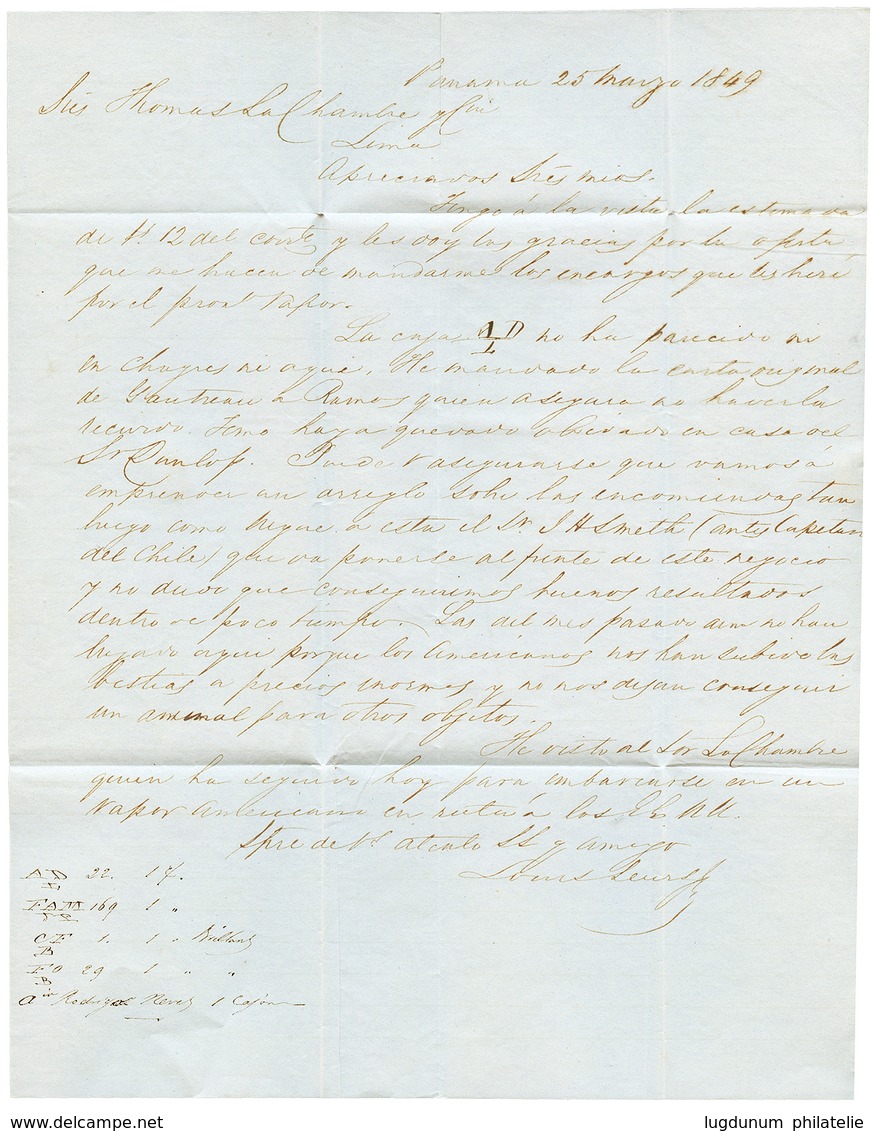 Panama 25 Marzo 1849
Sres Thomas La Chambre y Cia
Lima
Apreciados Sres mios.
Tengo á la vista la estimada
de Vs 12 del corrte y les doy las gracias por la oferta
que me hacen de mandarme los encargos que les hice
por el proxo Vapor.
La caja AD/L no ha parecido ni
en Chagres ni aqui. He mandado la carta original
de Gautreau a Ramos quien asegura no haverla
recivido. Temo haya quedado olvidado en casa del
Sr Dunlop. Puede V asegurarse que vamos á
emprender un arreglo sobre las encomiendas tan
luego como llegue a esta el Sr. J H Smeth (antes Capitan
del Chile) que va ponerse al frente de este negocio
y no dudo que conseguiremos buenos resultados
dentro de poco tiempo. Las del mes pasado aun no han
llegado aqui porque los Americanos nos han subido las
bestias a precios enormes y no nos dejan conseguir
un animal para otros objetos.
He visto al Sor La Chambre
quien ha seguido hoy para embarcarse en un
vapor Americano en ruta á los EE UU.
Spre de Vs atento SS y amigo
Louis
AD/L 22. 1
FAM 169 1 "
CF/B 1. 1 " Brillant
FO/B 29 1 " "
1 Cajon
www.delcampe.net
lugdunum philatelie